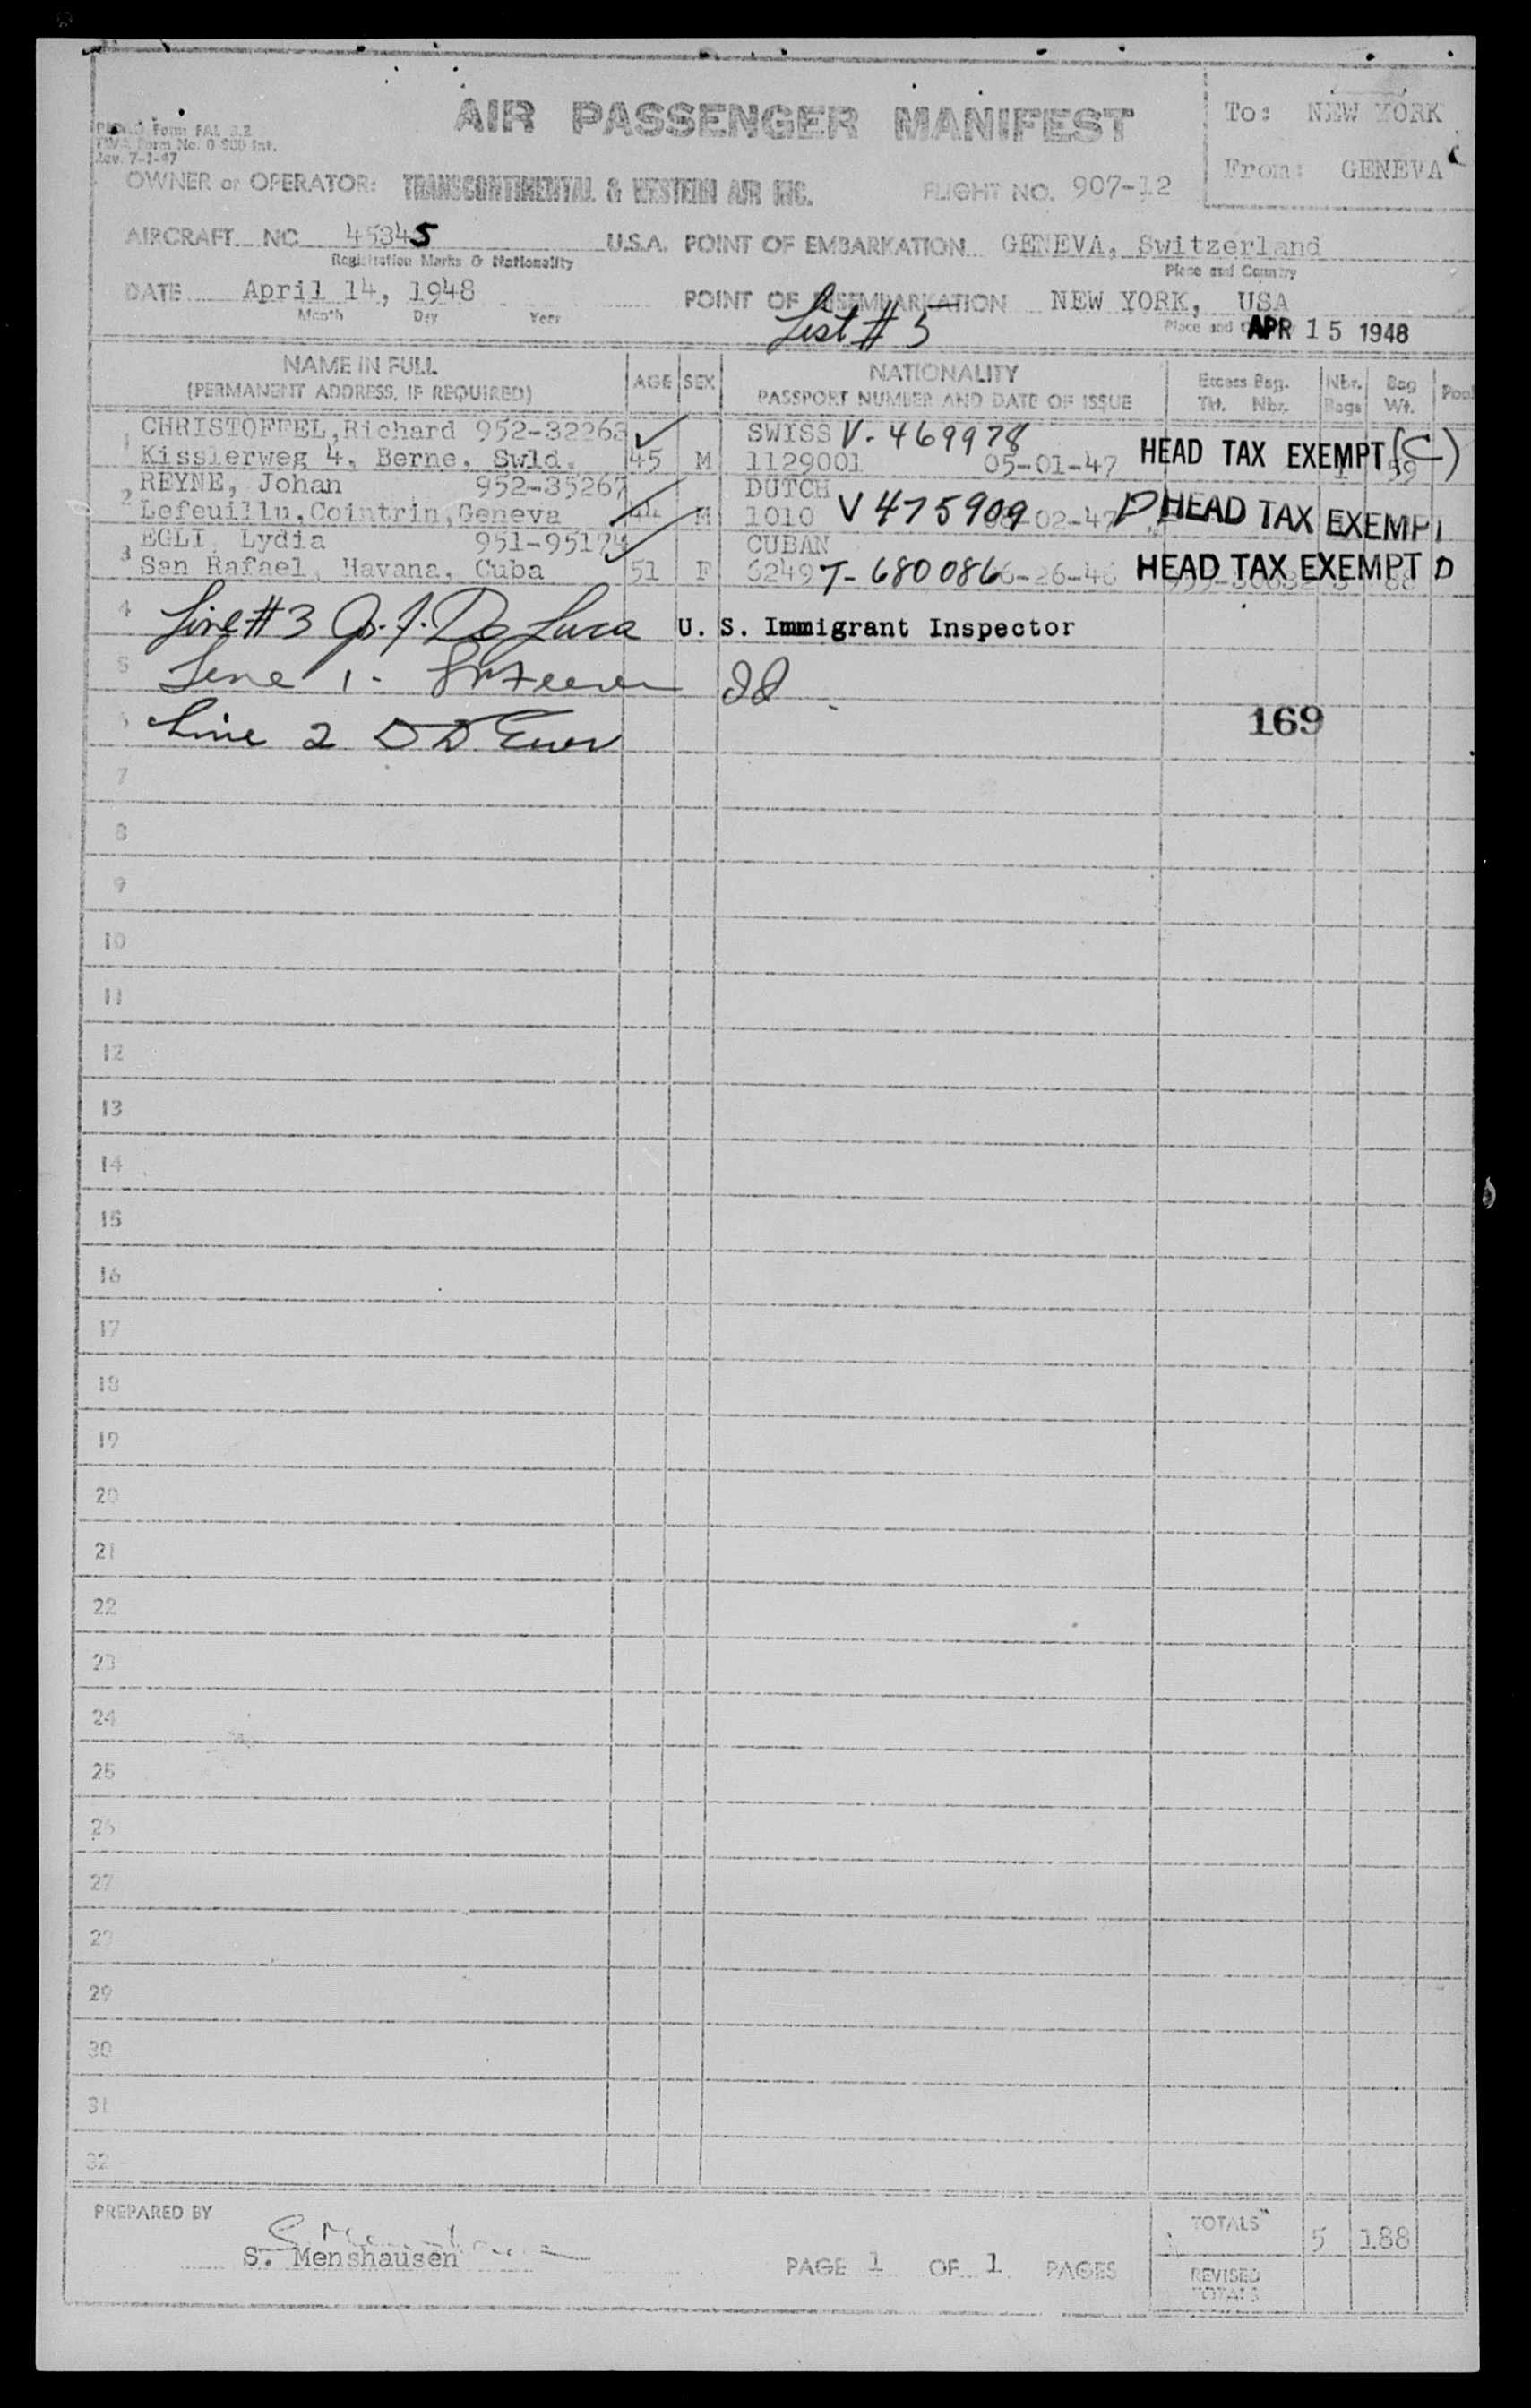 AIR PASSENGER MANIFEST
To: NEW YORK
From: GENEVA
Form FAL 3.2
Form No. Int.
Rev. 7-1-47
OWNER or OPERATOR: TRANSCONTINENTAL & WESTERN AIR INC. FLIGHT NO. 907-12
AIRCRAFT NC 45345 U.S.A. POINT OF EMBARKATION GENEVA, Switzerland
Registration Marks & Nationality Place and Country
DATE April 14, 1948 POINT OF DISEMBARKATION NEW YORK, USA
Month Day Year Place and
List # 5 APR 15 1948
NAME IN FULL
(PERMANENT ADDRESS, IF REQUIRED) AGE SEX NATIONALITY
PASSPORT NUMBER AND DATE OF ISSUE Excess Bag.
Tkt. Nbr. Nbr.
Bags Bag
Wt. Pool
1 CHRISTOFFEL,Richard 952-32263 SWISS V. 469978
Kisslerweg 4, Berne, Swld. 45 M 1129001 05-01-47 HEAD TAX EXEMPT (C) 1 59
2 REYNE, Johan 952-35267 DUTCH
Lefeuillu,Cointrin,Geneva 44 M 1010 V 475909 -02-47 D HEAD TAX EXEMPT
3 EGLI, Lydia 951-95174 CUBAN
San Rafael, Havana, Cuba 51 F 6249 T- 680086 6-26-46 HEAD TAX EXEMPT D 88
4 Line # 3 De Luca U. S. Immigrant Inspector
5 Line 1.
6 Line 2 169
7
8
9
10
11
12
13
14
15
16
17
18
19
20
21
22
23
24
25
26
27
28
29
30
31
32
PREPARED BY
S. Menshausen
PAGE 1 OF 1 PAGES
TOTALS 5 188
REVISED
TOTALS